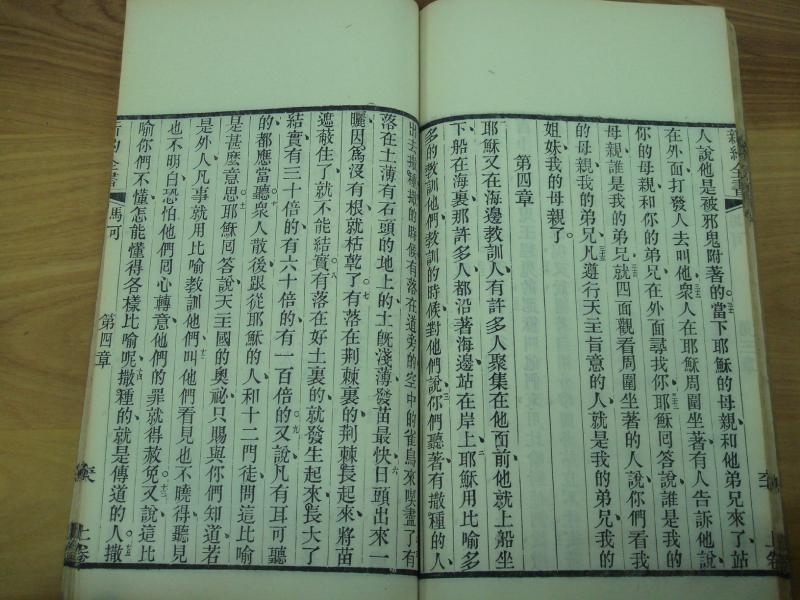 新約全書
人說他是被邪鬼附著的當下耶穌的母親和他弟兄來了站
在外面打發人去叫他衆人在耶穌周圍坐著有人告訴他說
你的母親和你的弟兄在外面尋我你耶穌回答說誰是我的
母親誰是我的弟兄就四面觀看周圍坐著的人說你們看我
的母親我的弟兄凡遵行天主旨意的人就是我的弟兄我的
姐妹我的母親了
第四章
耶穌又在海邊教訓人有許多人聚集在他面前他就上船坐
下船在海裏那許多人都沿著海邊站在岸上耶穌用比喻多
多的教訓他們教訓的時候對他們說你們聽著有撒種的人
上卷
出去撒種撒的時候有落在道旁的空中的雀鳥來喫盡了有
落在土薄有石頭的地上的土旣淺薄發苗最快日頭出來一
曬因爲沒有根就枯乾了有落在荆棘裏的荆棘長起來將苗
遮蔽住了就不能結實有落在好土裏的就發生起來長大了
結實有三十倍的有六十倍的有一百倍的又說凡有耳可聽
的都應當聽衆人散後跟從耶穌的人和十二門徒問這比喻
是甚麽意思耶穌回答說天主國的奧祕只賜與你們知道若
是外人凡事就用比喻教訓他們叫他們看見也不曉得聽見
也不明白恐怕他們囘心轉意他們的罪就得赦免又說這比
喻你們不懂怎能懂得各樣比喻呢撒種的就是傳道的人撒
新約全書
馬可
第四章
上卷